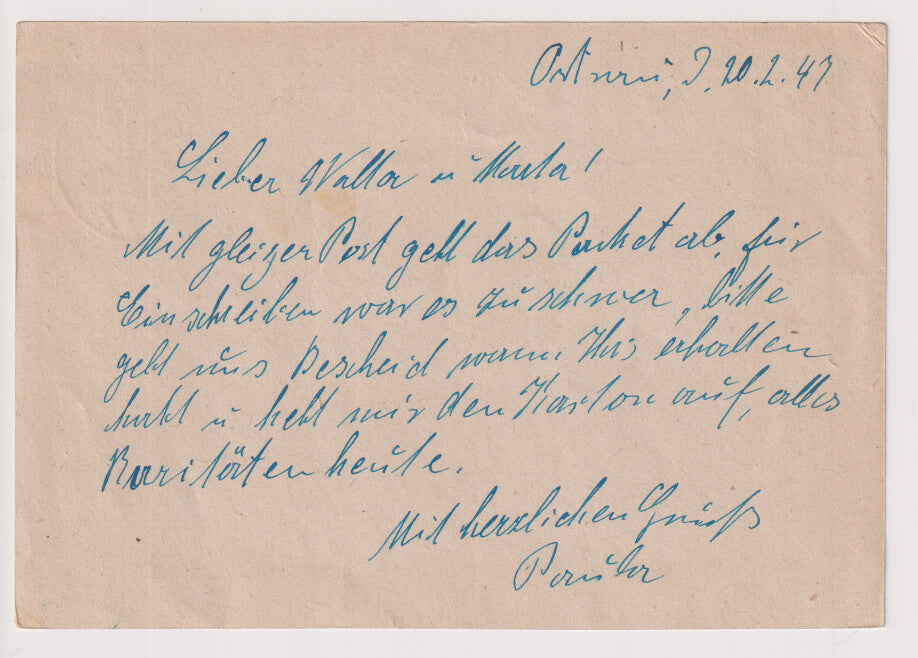 20.2.47
Lieber Walter u Marta!
Mit gleizer Post geht das Packet ab, für
Einschreiben war es zu schwer, bitte
gebt uns Bescheid wann Ihrs erhalten
habt u hebt mir den Karton auf, alles
Raritäten heute.
Mit herzlichen Gruß
Paula